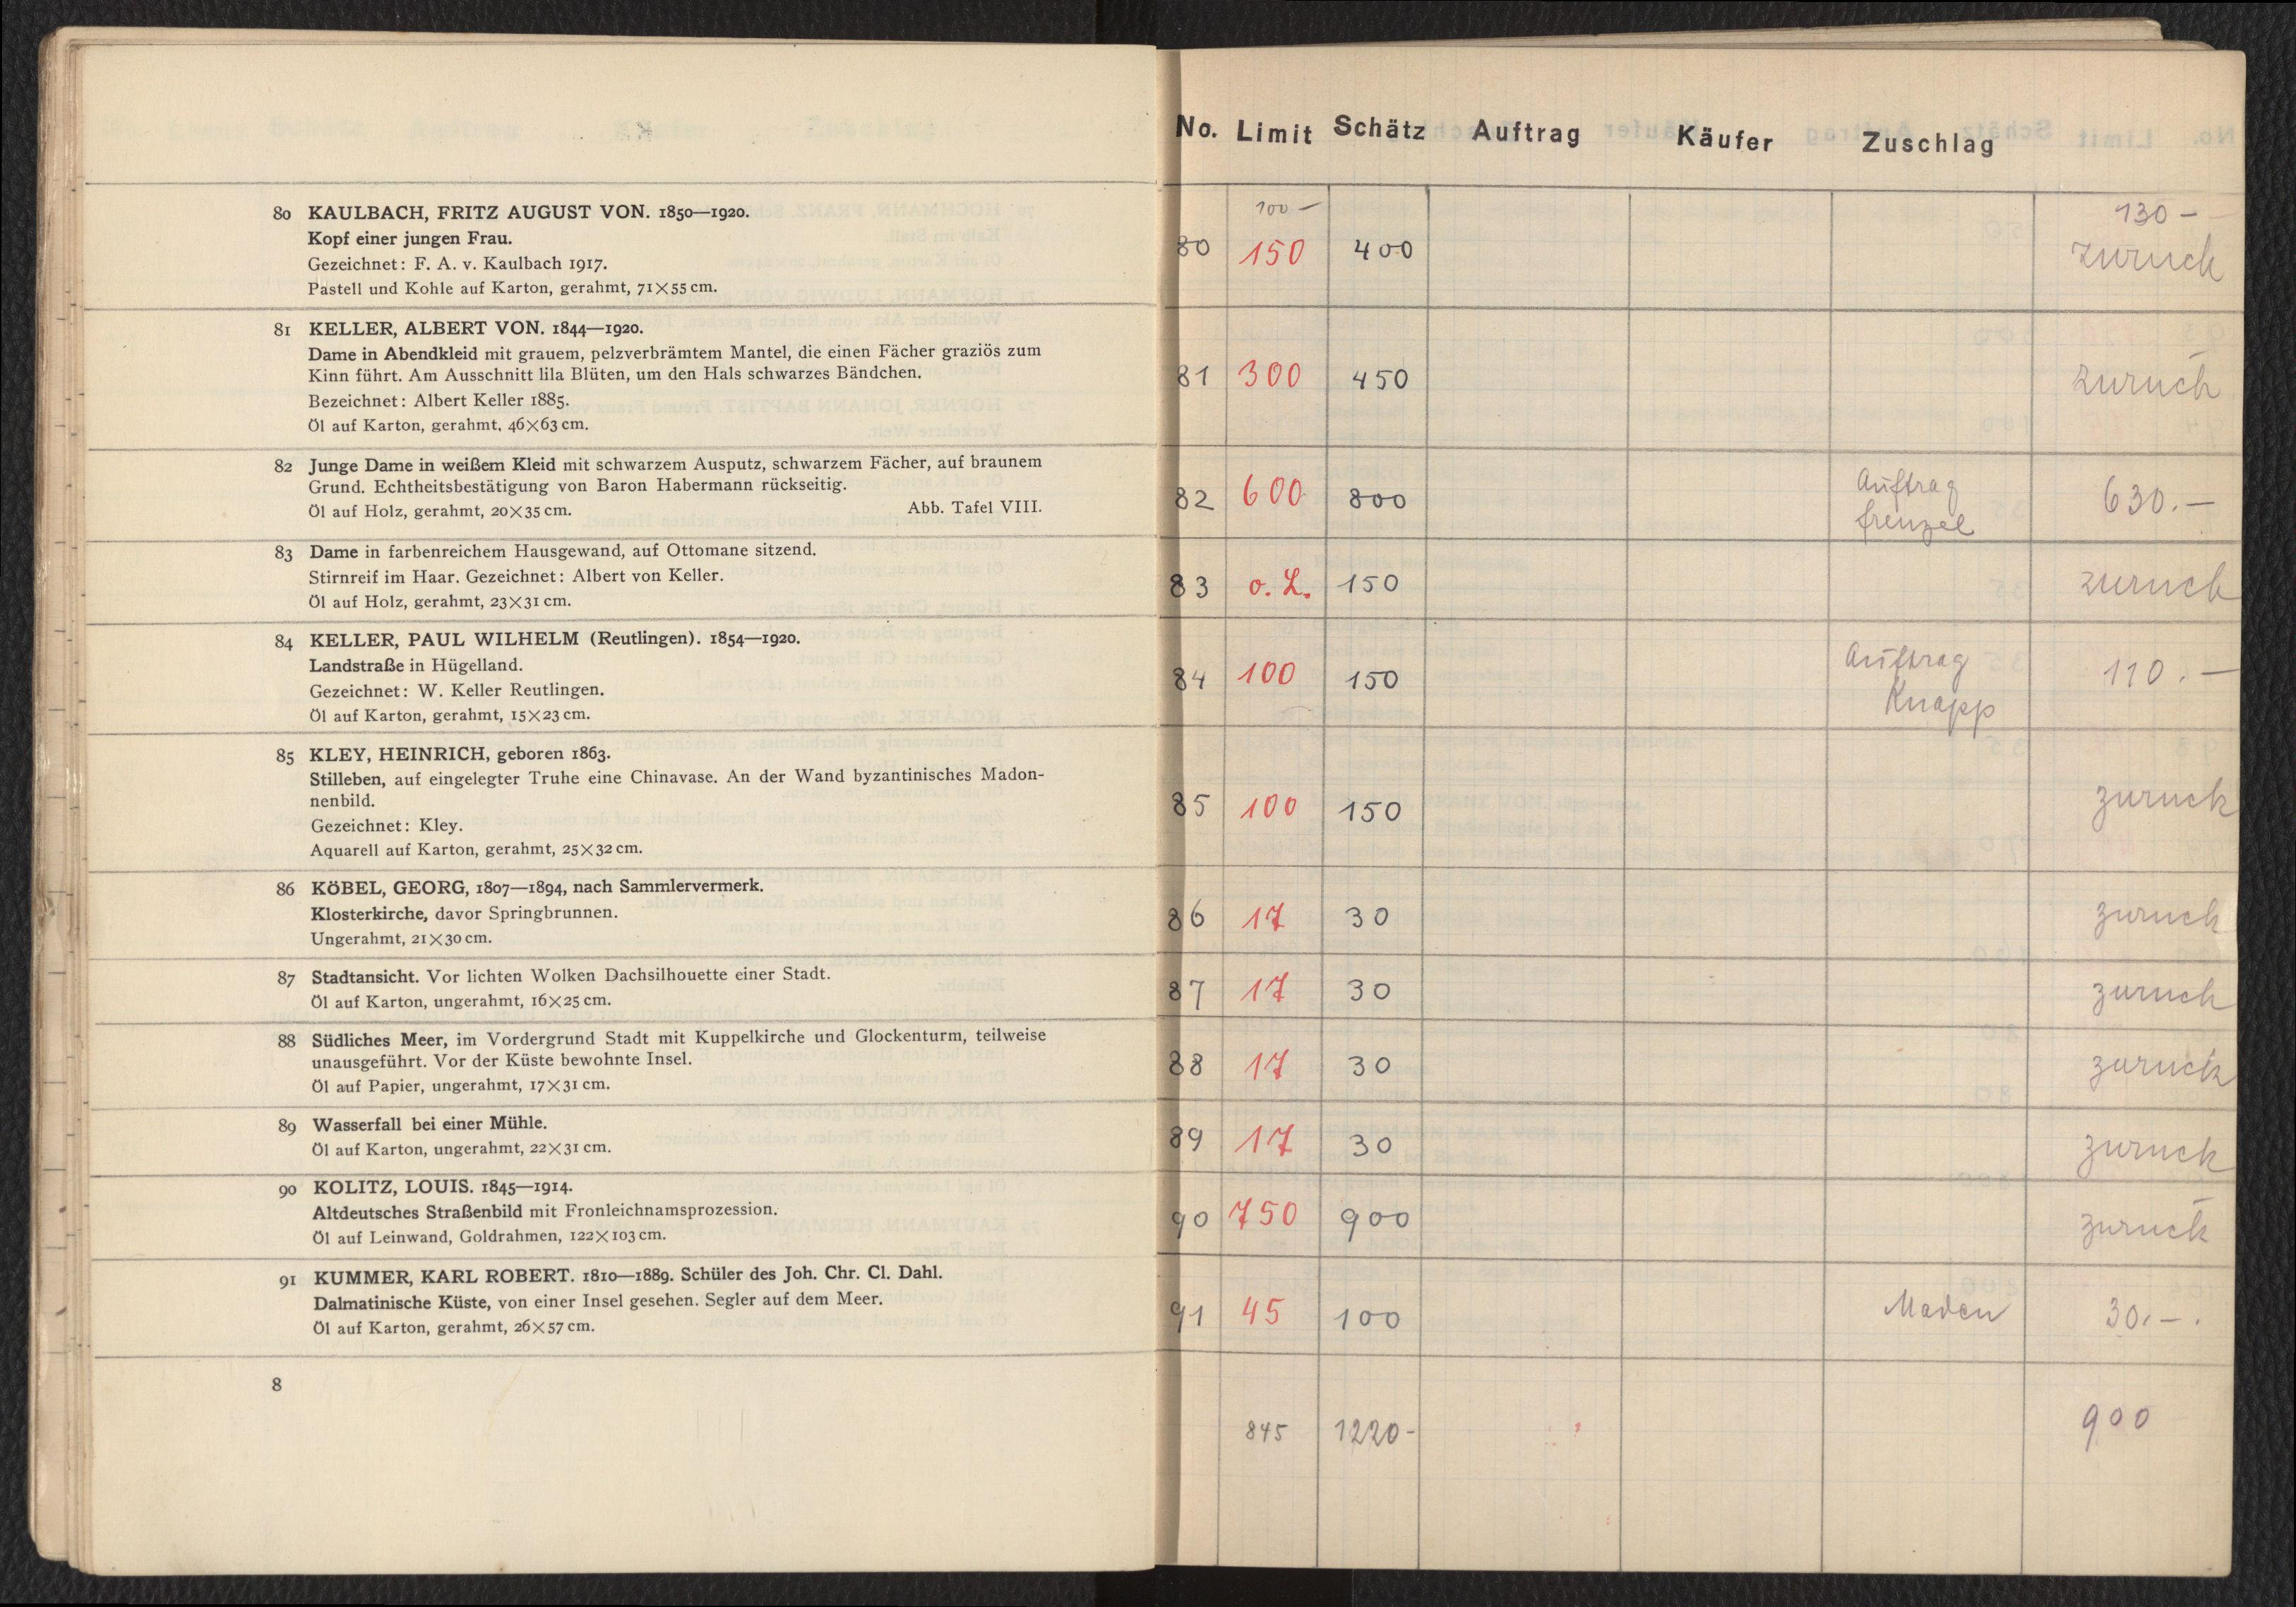 80 KAULBACH, FRITZ AUGUST VON. 1850—1920.
Kopf einer jungen Frau.
Gezeichnet: F. A. v. Kaulbach 1917.
Pastell und Kohle auf Karton, gerahmt, 71×55 cm.
81 KELLER, ALBERT VON. 1844—1920.
Dame in Abendkleid mit grauem, pelzverbrämtem Mantel, die einen Fächer graziös zum
Kinn führt. Am Ausschnitt lila Blüten, um den Hals schwarzes Bändchen.
Bezeichnet: Albert Keller 1885.
Öl auf Karton, gerahmt, 46×63 cm.
82 Junge Dame in weißem Kleid mit schwarzem Ausputz, schwarzem Fächer, auf braunem
Grund. Echtheitsbestätigung von Baron Habermann rückseitig.
Öl auf Holz, gerahmt, 20×35 cm. Abb. Tafel VIII.
83 Dame in farbenreichem Hausgewand, auf Ottomane sitzend.
Stirnreif im Haar. Gezeichnet: Albert von Keller.
Öl auf Holz, gerahmt, 23×31 cm.
84 KELLER, PAUL WILHELM (Reutlingen). 1854—1920.
Landstraße in Hügelland.
Gezeichnet: W. Keller Reutlingen.
Öl auf Karton, gerahmt, 15×23 cm.
85 KLEY, HEINRICH, geboren 1863.
Stilleben, auf eingelegter Truhe eine Chinavase. An der Wand byzantinisches Madon-
nenbild.
Gezeichnet: Kley.
Aquarell auf Karton, gerahmt, 25×32 cm.
86 KÖBEL, GEORG, 1807—1894, nach Sammlervermerk.
Klosterkirche, davor Springbrunnen.
Ungerahmt, 21×30 cm.
87 Stadtansicht. Vor lichten Wolken Dachsilhouette einer Stadt.
Öl auf Karton, ungerahmt, 16×25 cm.
88 Südliches Meer, im Vordergrund Stadt mit Kuppelkirche und Glockenturm, teilweise
unausgeführt. Vor der Küste bewohnte Insel.
Öl auf Papier, ungerahmt, 17×31 cm.
89 Wasserfall bei einer Mühle.
Öl auf Karton, ungerahmt, 22×31 cm.
90 KOLITZ, LOUIS. 1845—1914.
Altdeutsches Straßenbild mit Fronleichnamsprozession.
Öl auf Leinwand, Goldrahmen, 122×103 cm.
91 KUMMER, KARL ROBERT. 1810—1889. Schüler des Joh. Chr. Cl. Dahl.
Dalmatinische Küste, von einer Insel gesehen. Segler auf dem Meer.
Öl auf Karton, gerahmt, 26×57 cm.
8
No. Limit Schätz Auftrag Käufer Zuschlag
100 — 130 —
80 150 400 zurück
81 300 450 zurück
82 600 800 Auftrag 630.—
frenzel
83 o. L. 150 zurück
84 100 150 Auftrag 110.—
Knapp
85 100 150 zurück
86 17 30 zurück
87 17 30 zurück
88 17 30 zurück
89 17 30 zurück
90 750 900 zurück
91 45 100 Maden 30.—.
845 1220- 900